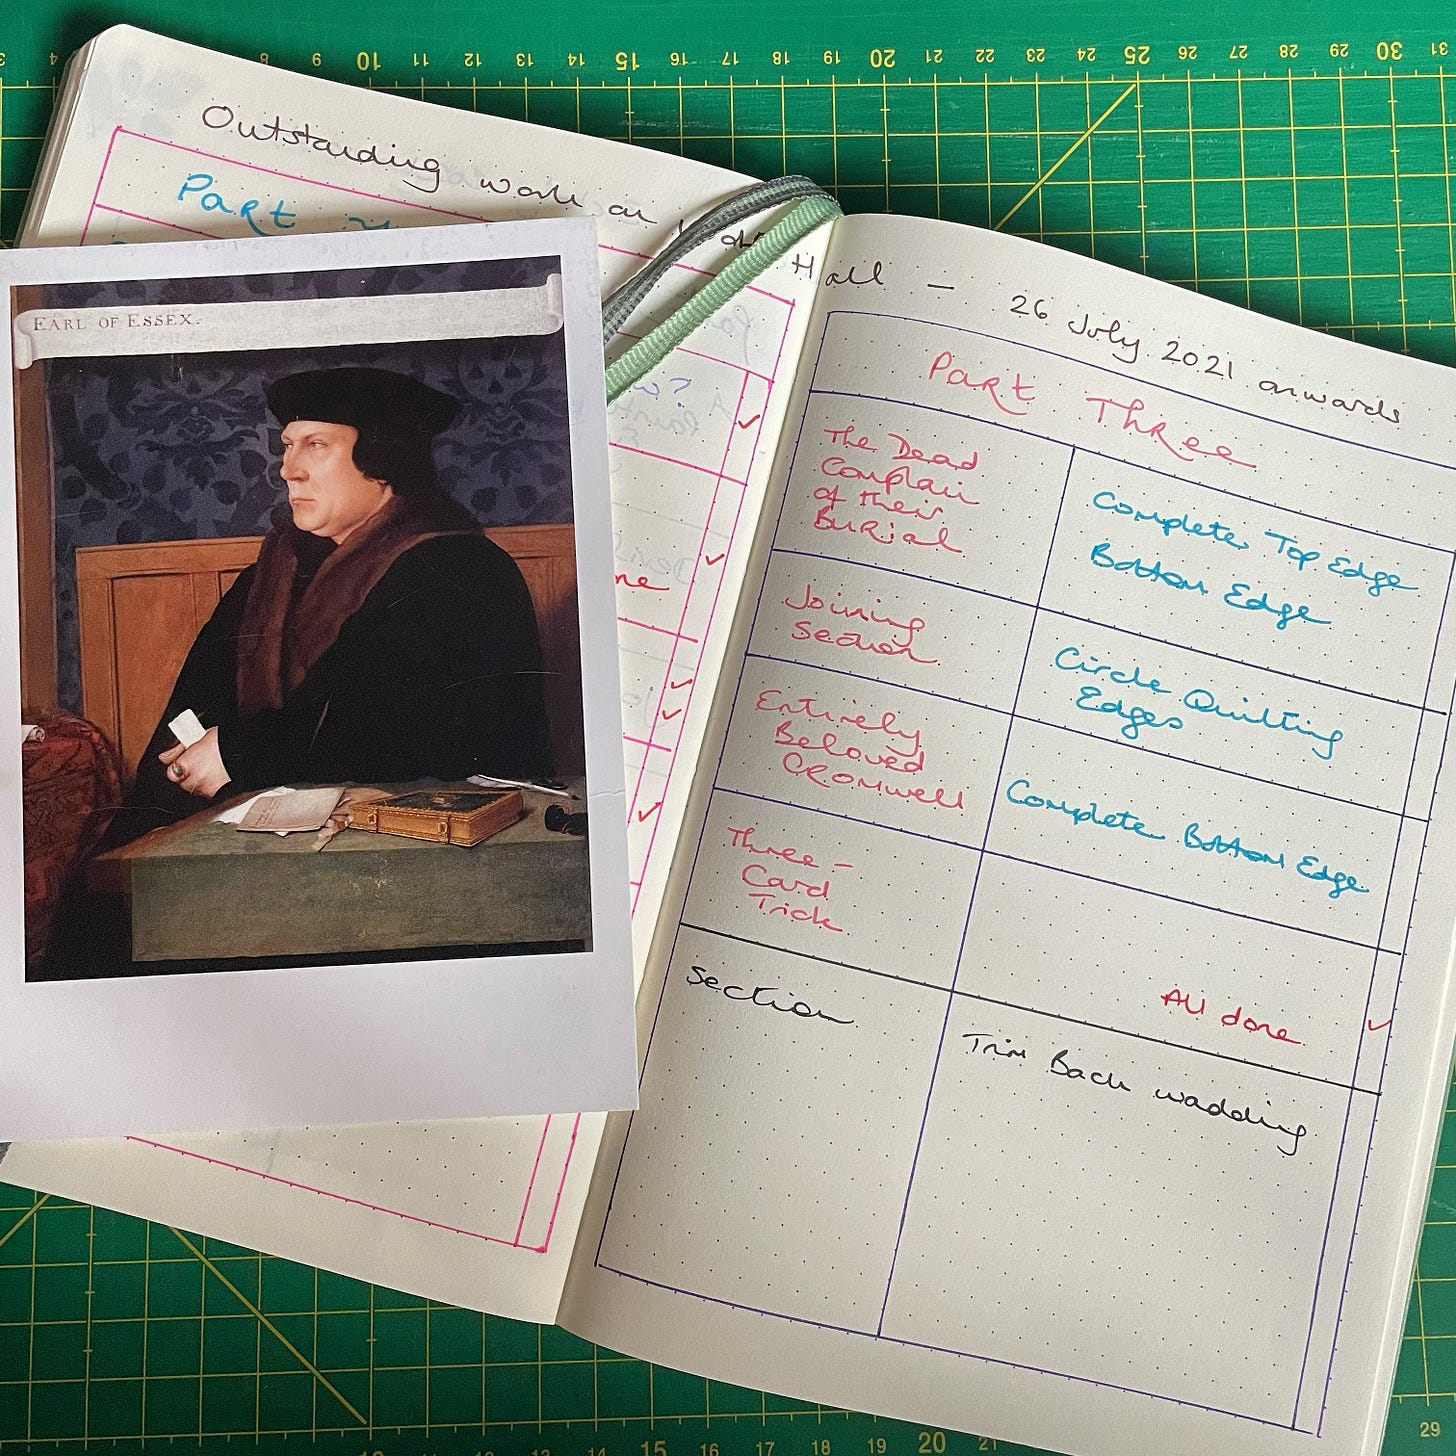 Outstanding work on Hall — 26 July 2021 onwards
Part
EARL OF ESSEX.
Part Three
The Dead
Complain
of their
Burial
Complete Top Edge
Bottom Edge
Joining
Section
Circle Quilting
Edges
Entirely
Beloved
Cromwell
Complete Bottom Edge
Three-
Card
Trick
All done
Section
Trim Back wadding
4
8
9
10
11
12
13
14
15
16
17
18
19
20
21
22
23
24
25
26
27
28
29
30
31
14
15
16
17
18
19
20
21
29